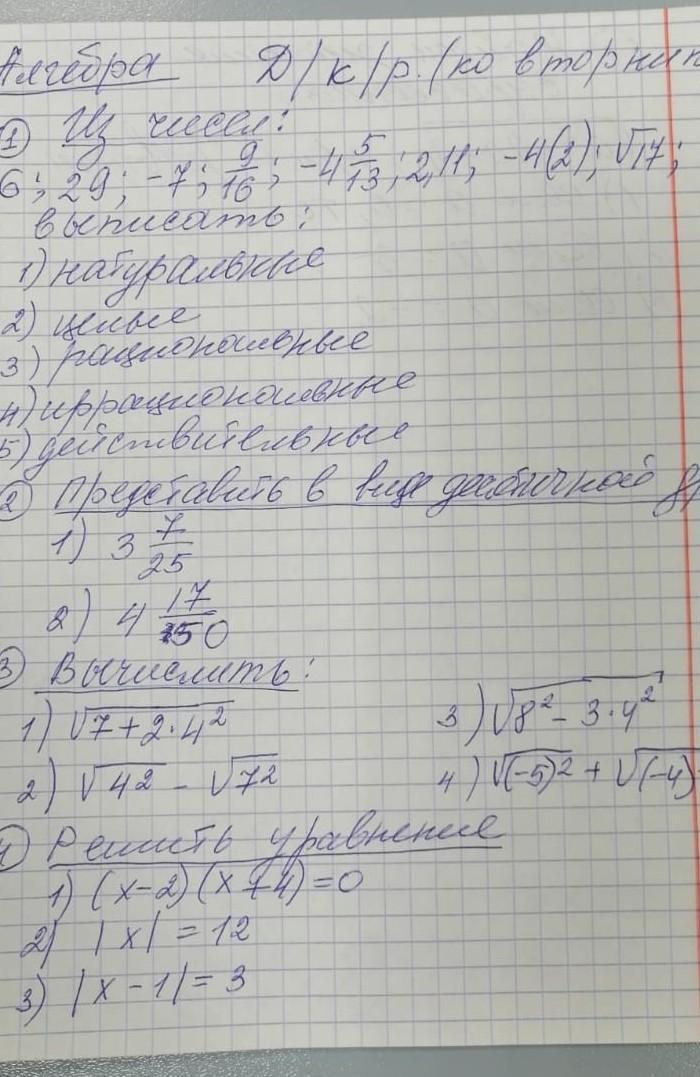 Алгебра Д/к/р. (ко вторник
① Из чисел:
6; 29; -7; 9/16; -4 5/13; 2,11; -4(2); √17;
выписать:
1) натуральные
2) целые
3) рациональные
4) иррациональные
5) действительные
② Представить в виде десятичной др
1) 3 7/25
2) 4 17/50
③ Вычислить:
1) √(7+2·4²) 3) √(8²-3·4²)
2) √4² - √7² 4) √(-5)² + √(-4)
4 Решить уравнение
1) (x-2)(x+4)=0
2) |x| = 12
3) |x-1| = 3